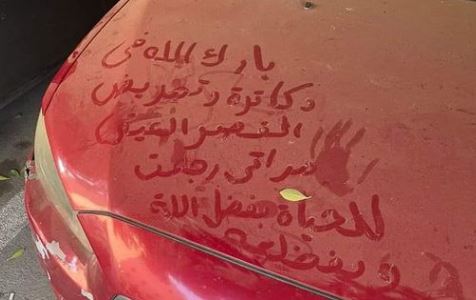 بارك الله في
دكاترة وتمريض
القصر العيني
مراتي رجعت
للحياة بفضل الله
وبفضلهم